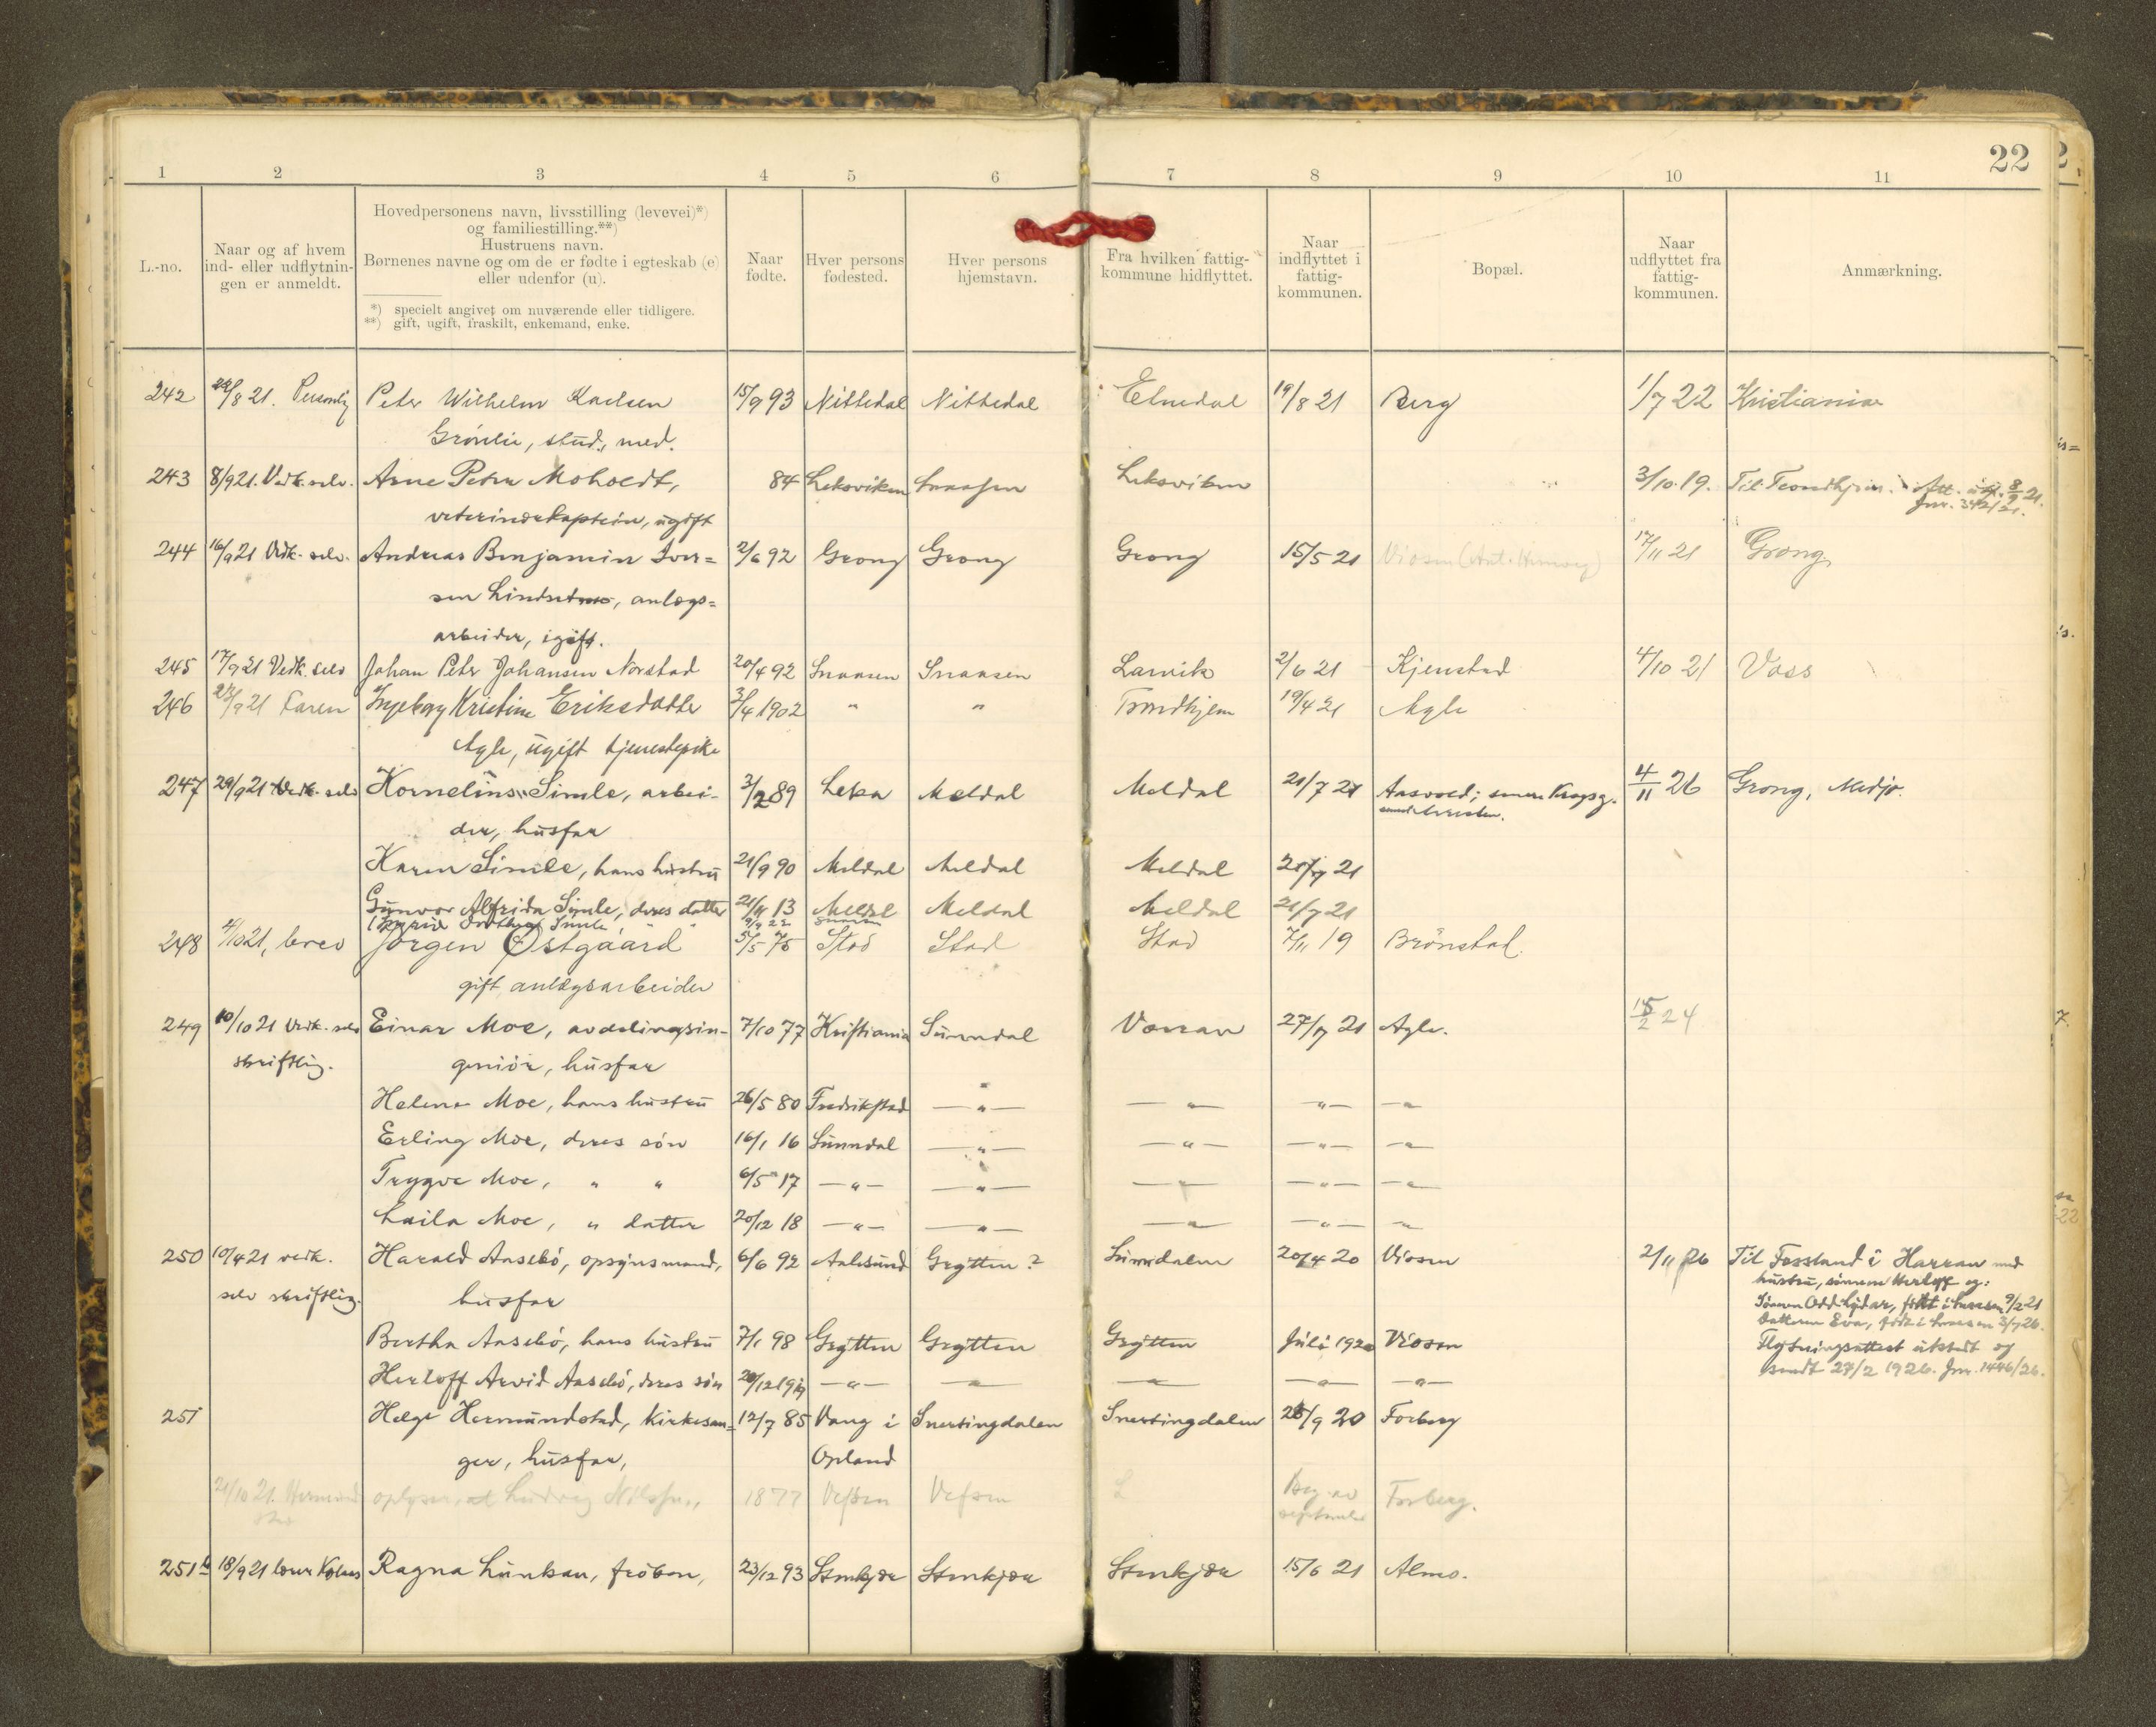 22
1 2 3 4 5 6 7 8 9 10 11
L.-no.
Naar og af hvem
ind- eller udflytnin-
gen er anmeldt.
Hovedpersonens navn, livsstilling (levevei)*)
og familiestilling.**)
Hustruens navn.
Børnenes navne og om de er fødte i egteskab (e)
eller udenfor (u).
*) specielt angivet om nuværende eller tidligere.
**) gift, ugift, fraskilt, enkemand, enke.
Naar
fødte.
Hver persons
fødested.
Hver persons
hjemstavn.
Fra hvilken fattig-
kommune hidflyttet.
Naar
indflyttet i
fattig-
kommunen.
Bopæl.
Naar
udflyttet fra
fattig-
kommunen.
Anmærkning.
242 22/8 21. Personlig Peter Wilhelm Karlsen 15/9 93 Nittedal Nittedal Elnedal 19/8 21 Berg 1/7 22 Kristiania
Grönlie, stud. med.
243 8/9 21. Vedk. selv. Arne Peter Moholdt, 84 Leksviken Snaasen Leksviken 3/10. 19. Til Trondhjem. Att. 8/9 21.
Jnr. 342/21.
veterinærkaptein, ugift
244 16/9 21 Vedk. selv. Andreas Benjamin Iver= 2/6 92 Grong Grong Grong 15/5 21 Viosen 17/11 21 Grong
sen Lindset, anlægs=
arbeider, ugift.
245 17/9 21 Vedk. selv Johan Peter Johansen Norstad 20/4 92 Snaasen Snaasen Larvik 2/6 21 Kjenstad 4/10 21 Voss
246 23/9 21 Faren Ingeborg Kristine Eriksdatter 3/4 1902 " " Trondhjem 19/4 21 Agle
Agle, ugift tjenestepike
247 29/9 21 Vedk. selv Kornelius Simle, arbei- 3/2 89 Leka Meldal Meldal 21/7 21 Aasvold; senere 4/11 26 Grong, Medjo.
der, husfar
Karen Simle, hans hustru 21/9 90 Meldal Meldal Meldal 21/7 21
Gunvor Alfrida Simle, deres datter 21/11 13 Meldal Meldal Meldal 21/7 21
Simle 9/9 22 Snaasen
248 4/10 21, brev Jörgen Østgaard 5/5 75 Stod Stod Stod 7/11 19 Brönstad.
gift anlægsarbeider
249 10/10 21 Vedk. selv Einar Moe, avdelingsin- 7/10 77 Kristiania Sunndal Værran 27/7 21 Agle. 15/2 24
skriftlig. geniör, husfar
Helene Moe, hans hustru 26/5 80 Fredrikstad — " — — " — — " — — " —
Erling Moe, deres sön 16/1 16 Sunndal — " — — " — — " — — " —
Trygve Moe, " " 6/5 17 — " — — " — — " — — " — — " —
Laila Moe, " datter 20/12 18 — " — — " — — " — — " — — " —
250 10/4 21 vedk. Harald Aasebö, opsynsmand, 6/6 92 Aalesund Grytten? Sunndalen 20/4 20 Viosen 2/11 26 Til Fossland i Harran med
selv skriftlig. husfar hustru, sönnen Herloff og:
Sönnen Odd Lydar, födt i Snaasen 9/2 21
Datteren Eva, födt i Snaasen 3/7 26.
Bertha Aasebö, hans hustru 7/1 98 Grytten Grytten Grytten Juli 1920 Viosen Flytningsattest utstedt og
sendt 27/2 1926. Jnr. 1446/26.
Herloff Arvid Aasebö, deres sön 20/12 19 — " — — " — — " — — " — — " —
251 Helge Hermundstad, kirkesan= 12/7 85 Vang i Snertingdalen Snertingdalen 25/9 20 Forberg
ger, husfar, Opland
21/10 21. Hermund oplyser, at Ludvig 1877 Vefsen Vefsen Beg. av Forberg.
stad september
251b 18/9 21 Ragna Lunkan, fröken, 23/12 93 Stenkjær Stenkjær Stenkjær 15/6 21 Almo.